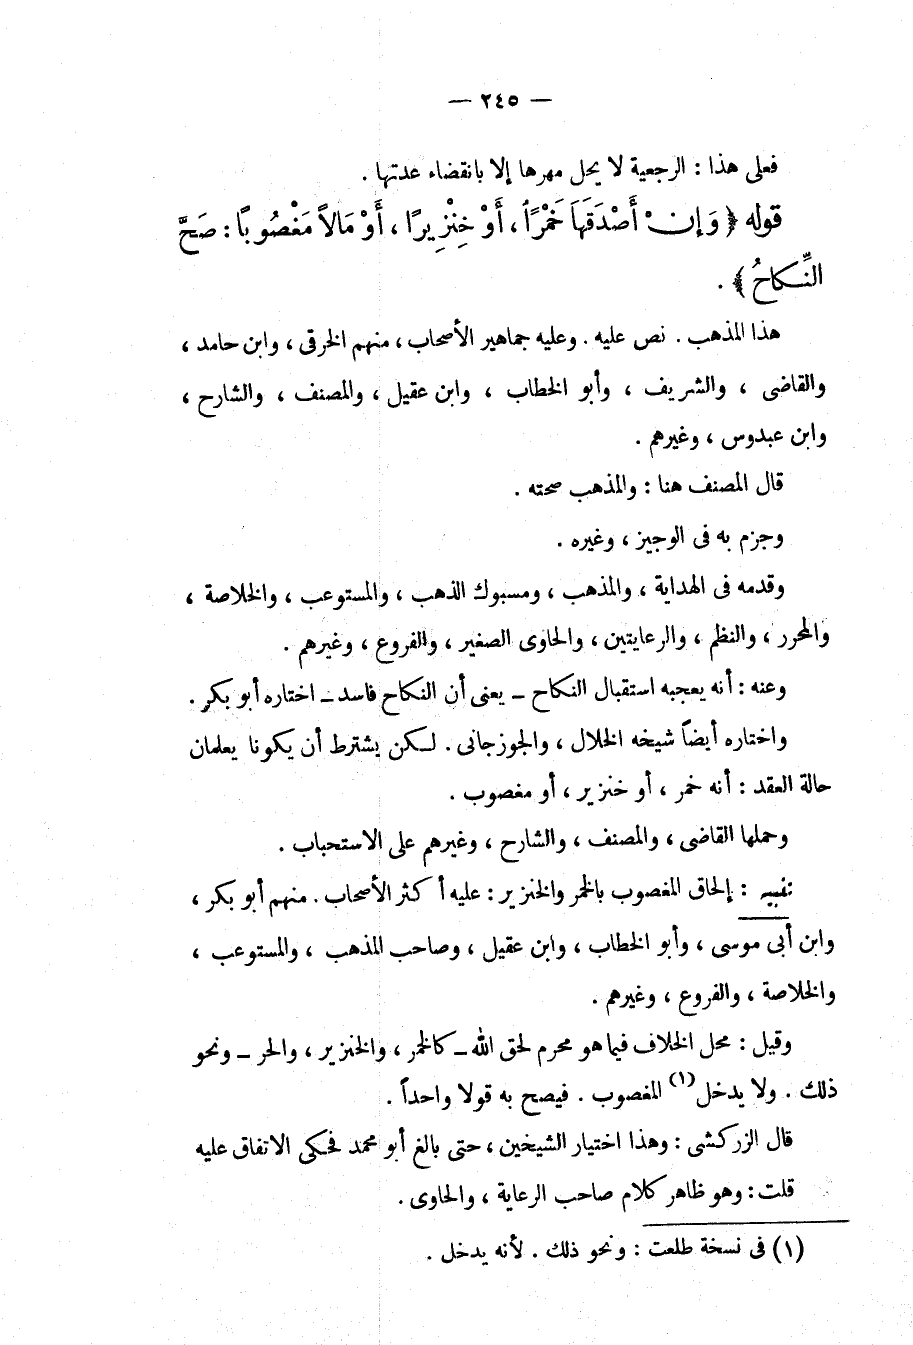 — ٢٤٥ —
فعلى هذا : الرجعية لا يحل مهرها إلا بانقضاء عدتها .
قوله ﴿ وَإِنْ أَصْدَقَهَا خَمْرًا ، أَوْ خِنْزِيرًا ، أَوْ مَالاً مَغْصُوبًا : صَحَّ
النِّكَاحُ ﴾ .
هذا المذهب . نص عليه . وعليه جماهير الأصحاب ، منهم الخرقى ، وابن حامد ،
والقاضى ، والشريف ، وأبو الخطاب ، وابن عقيل ، والمصنف ، والشارح ،
وابن عبدوس ، وغيرهم .
قال المصنف هنا : والمذهب صحته .
وجزم به فى الوجيز ، وغيره .
وقدمه فى الهداية ، والمذهب ، ومسبوك الذهب ، والمستوعب ، والخلاصة ،
والمحرر ، والنظم ، والرعايتين ، والحاوى الصغير ، والفروع ، وغيرهم .
وعنه : أنه يعجبه استقبال النكاح – يعنى أن النكاح فاسد – اختاره أبو بكر .
واختاره أيضاً شيخه الخلال ، والجوزجانى . لكن يشترط أن يكونا يعلمان
حالة العقد : أنه خمر ، أو خنزير ، أو مغصوب .
وحملها القاضى ، والمصنف ، والشارح ، وغيرهم على الاستحباب .
تنبيه : إلحاق المغصوب بالخمر والخنزير : عليه أكثر الأصحاب . منهم أبو بكر ،
وابن أبى موسى ، وأبو الخطاب ، وابن عقيل ، وصاحب المذهب ، والمستوعب ،
والخلاصة ، والفروع ، وغيرهم .
وقيل : محل الخلاف فيما هو محرم لحق الله – كالخمر ، والخنزير ، والحر – ونحو
ذلك . ولا يدخل(١) المغصوب . فيصح به قولا واحداً .
قال الزركشى : وهذا اختيار الشيخين ، حتى بالغ أبو محمد فحكى الاتفاق عليه
قلت : وهو ظاهر كلام صاحب الرعاية ، والحاوى .
(١) فى نسخة طلعت : ونحو ذلك . لأنه يدخل .